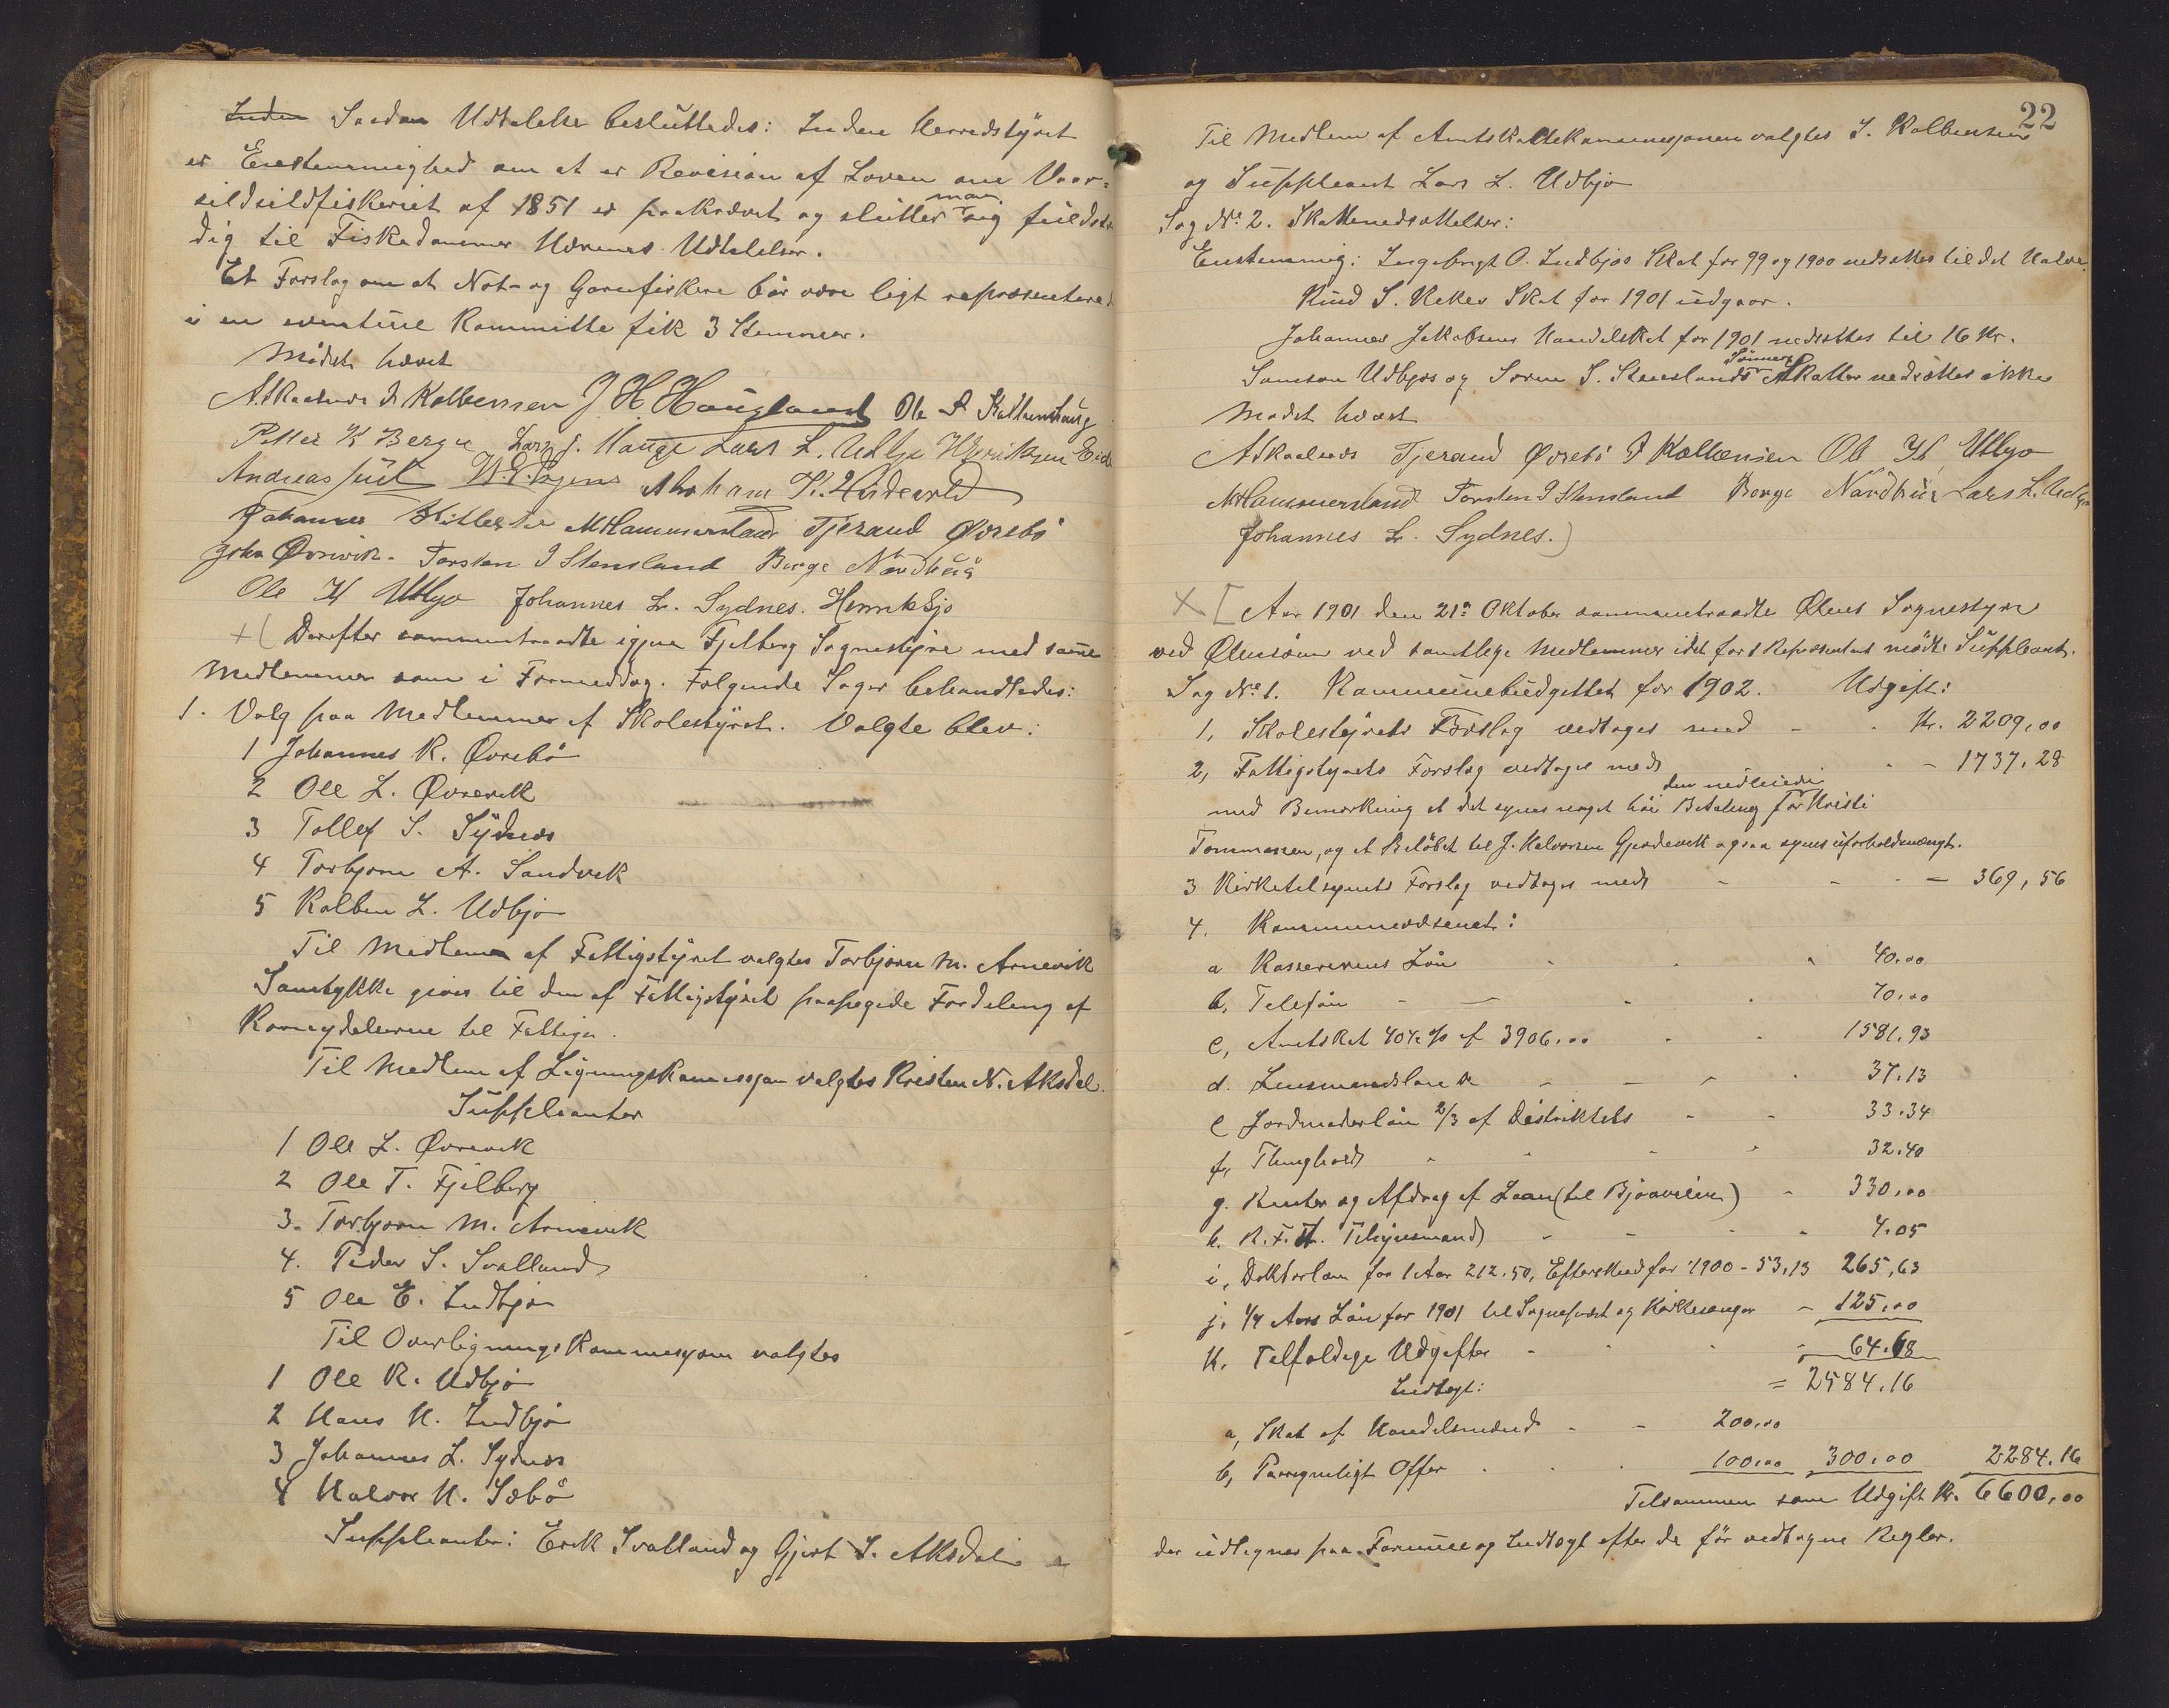 Inden Saadan Udtalelse besluttedes: Inden Herredstyret
er Enstemmighed om at er Revision af Loven om Vaar-
sildsildfiskeriet af 1851 er paakrævet og slutter man sig fuldstæn
dig til Fiskedommer Udtalelser.
Et Forslag om at Not- og Garnfiskere bør være ligt repræsentered
i en eventuel Kommitte fik 3 Stemmer.
Mødet hævet
A. Skaalnes S Kolbensen J H Haugland Ole A
Petter K Berge Lars J. Hauge Lars L. Udbjo Henriksen Eide
Andreas Juul Abraham K.
Johannes M Hammersland Tjerand Øvrebø
John Øvrevik. Torsten I Stensland Børge Nordhuus
Ole H Utbjo Johannes L. Sydnes. Henrik Sjo
+( Derefter sammentraadte igjen Fjelberg Sognestyre med samme
Medlemmer som i Formiddag. Følgende Sager behandledes:
1. Valg paa Medlemmer af Skolestyret. Valgte blev:
1 Johannes R. Øvrebø
2 Ole L. Øvrevik
3 Tollef S. Sydnes
4 Torbjørn A. Sandvik
5 Kolben L. Udbjo
Til Medlem af Fattigstyret valgtes Torbjørn M. Arnevik
Samtykke gives til den af Fattigstyret paapegede Fordeling af
Kornydelserne til Fattige.
Til Medlem af Ligningskommissjon valgtes Kristen N. Aksdal.
Suppleanter
1 Ole L. Øvrevik
2 Ole T. Fjelberg
3. Torbjørn M. Arnevik
4. Peder S. Svalland
5 Ole E. Indbjo
Til Overligningskommissjon valgtes
1 Ole K. Udbjo
2 Hans H. Indbjo
3 Johannes L. Sydnes
4 Halvor H. Sæbø
Suppleanter: Erik Svalland og Gjert S. Aksdal
22
Til Medlem af Amtskattekommissjonen valgtes S. Kolbensen
og Suppleant Lars L. Udbjo
Sag No. 2. Skattenedsættelser:
Enstemmig: Ingebrigt O. Indbjos Skat for 99 og 1900 nedsættes til det Halve.
Knud S. Skat for 1901 udgaar.
Johannes Jakobsens Handelskat for 1901 nedsættes til 16 Kr.
Samson Udbjos og Søren S. Stenslands Sønners Skatter nedsættes ikke
Mødet hævet
A Skaalnes Tjerand Øvrebø S Kolbensen Ole H, Utbjo
M Hammersland Torsten I Stensland Børge Nordhuus Lars L. Udbjo
Johannes L. Sydnes.)
X [ Aar 1901 den 21de Oktober sammentraadte Ølens Sognestyre
ved Ølensøen ved samtlige Medlemmer idet for 1 Repræsentant mødte Suppleant.
Sag No. 1. Kommunebudgettet for 1902. Udgift:
1, Skolestyrets Forslag vedtages med - - Kr. 2209,00
2, Fattigstyrets Forslag vedtages med - - 1737,28
med Bemærkning at det synes noget høi Betaling for den nedlendte Kristi
Tommesen, og at Beløbet til J. Halvorsen Gjerdevik ogsaa synes uforholdsmæssigt.
3 Kirketilsynets Forslag vedtages med - - - 369,56
4. Kommunevæsenet:
a Kassererens Løn - - - 40.00
b, Telefon - - - - 70.00
c, Amtskat 40½ % af 3906.00 - - 1581.93
d. Lensmandsløn - - - - 37.13
e Jordmoderløn 2/3 af Distriktets - - 33.34
f, Thinghold - - - - 32.40
g. Renter og Afdrag af Laan (til Bjoaveien) - 330.00
h. Tilsynsmand - - - - 4.05
i, Doktorløn for 1 Aar 212.50, Efterskud for 1900 - 53,13 265,63
j. ¼ Aars Løn for 1901 til Sogneprest og Kirkesanger - 125.00
k. Tilfældige Udgifter - - - 64.68
Indtægt: = 2584.16
a, Skat af Handelsmænd - - 200.00
b, Offer - - 100.00 300.00 2284.16
Tilsammen som Udgift Kr. 6600,00
der udlignes paa Formue og Indtægt efter de før vedtagne Regler.